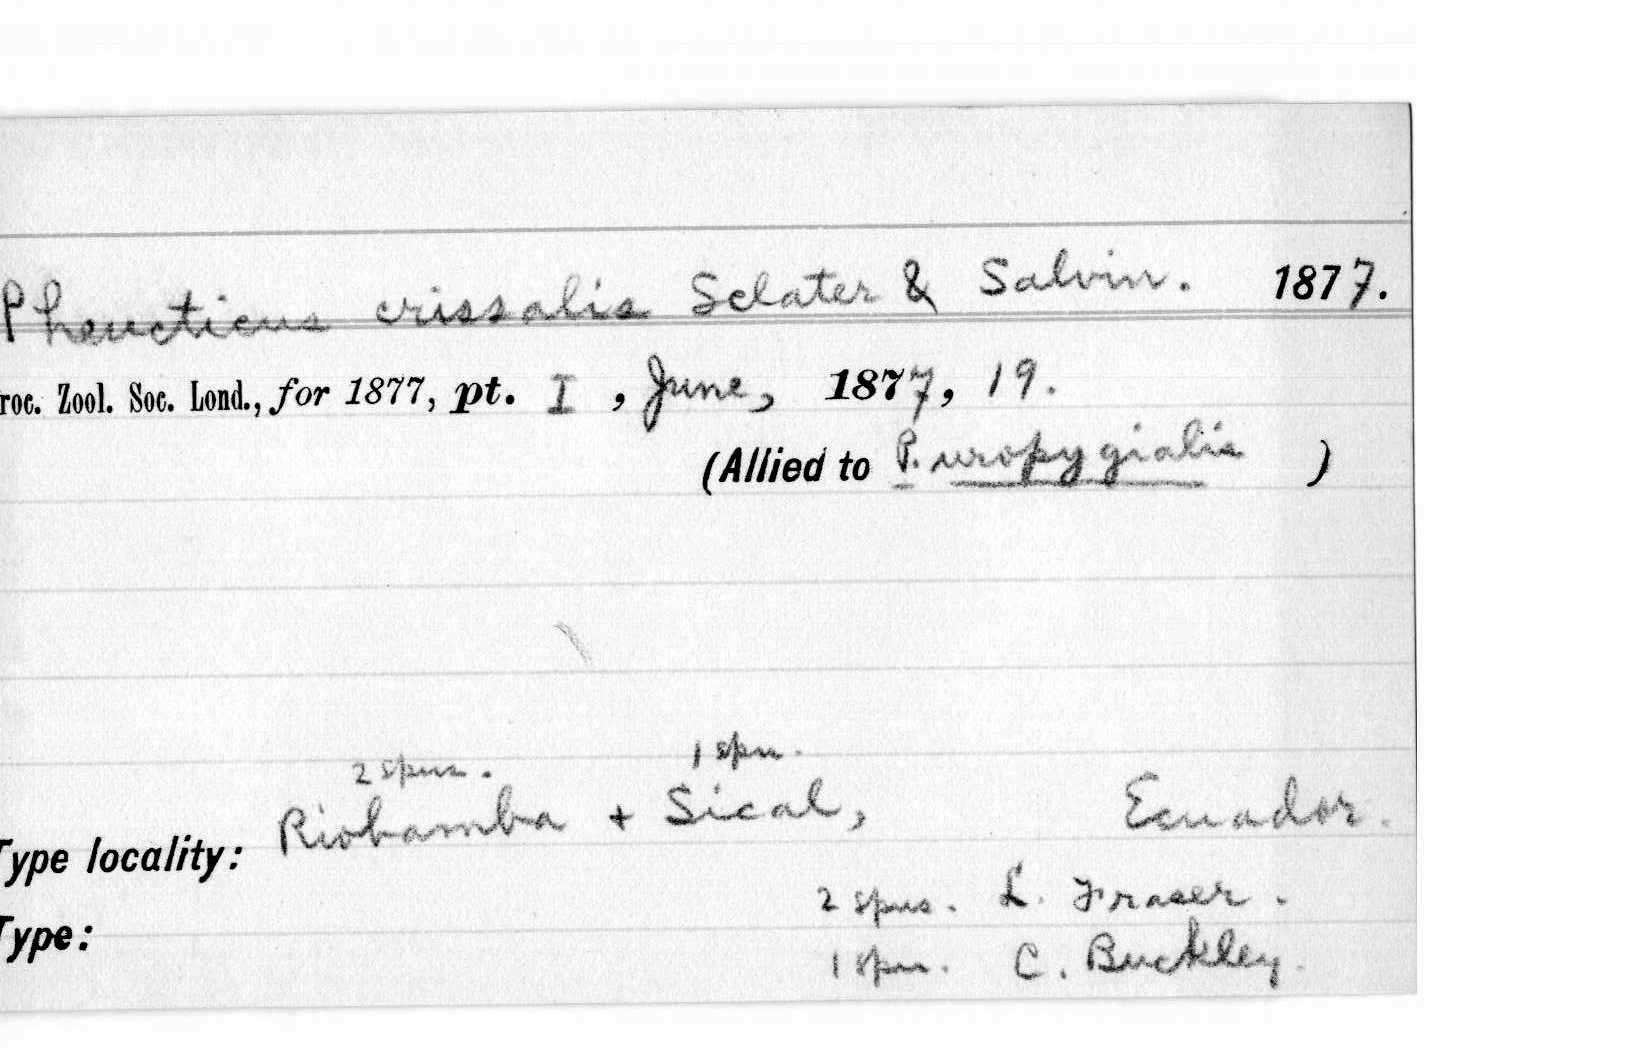 Pheucticus crissalis Sclater & Salvin. 1877.
roc. Zool. Soc. Lond., for 1877, pt. I, June, 1877, 19.
(Allied to P. uropygialis )
2 spns. 1 spn.
Type locality: Riobamba + Sical, Ecuador.
2 spns. L. Fraser.
Type: 1 spn. C. Buckley.